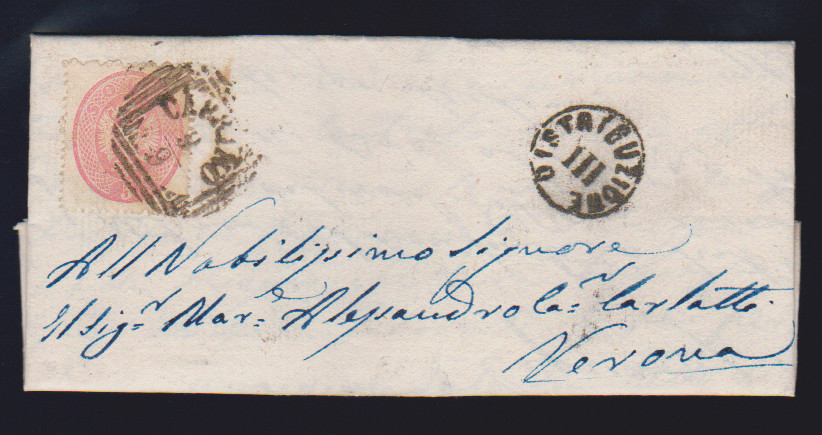 DISTRIBUZIONE
III
All Nobilissimo Signore
Il Sigr Marе Alessandro Car Carlotti
Verona